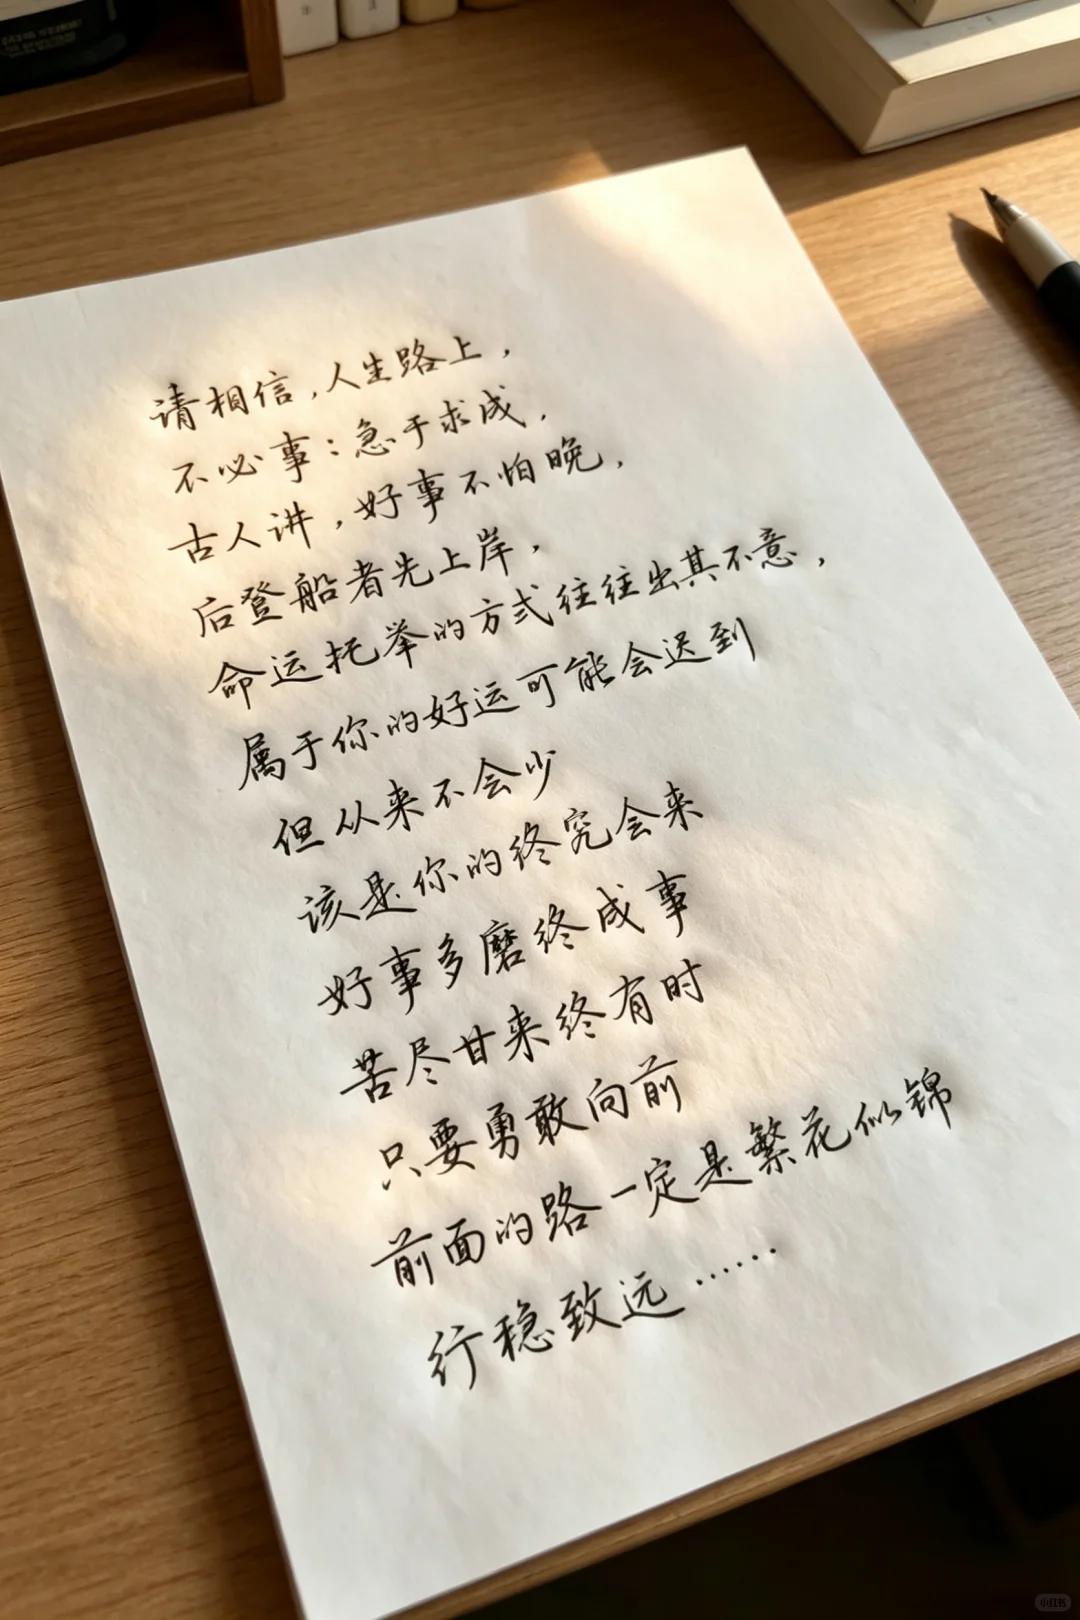 请相信，人生路上，
不必事：急于求成，
古人讲，好事不怕晚，
后登船者先上岸，
命运托举的方式往往出其不意，
属于你的好运可能会迟到
但从来不会少
该是你的终究会来
好事多磨终成事
苦尽甘来终有时
只要勇敢向前
前面的路一定是繁花似锦
行稳致远……
小红书